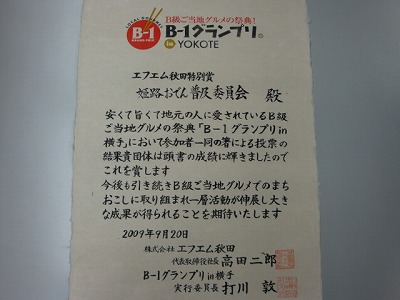 LOCAL GOURMET
B-1
GRAND PRIX
B級ご当地グルメの祭典!
B-1グランプリ®
in YOKOTE
エフエム秋田特別賞
姫路おでん普及委員会 殿
安くて旨くて地元の人に愛されているB級
ご当地グルメの祭典「B-1グランプリin
横手」において参加者一同の箸による投票の
結果貴団体は頭書の成績に輝きましたので
これを賞します
今後も引き続きB級ご当地グルメでのまち
おこしに取り組まれ一層活動が伸展し大き
な成果が得られることを期待いたします
2009年9月20日
株式会社 エフエム秋田
代表取締役社長 高田二郎
B-1グランプリin横手
実行委員長 打川 敦